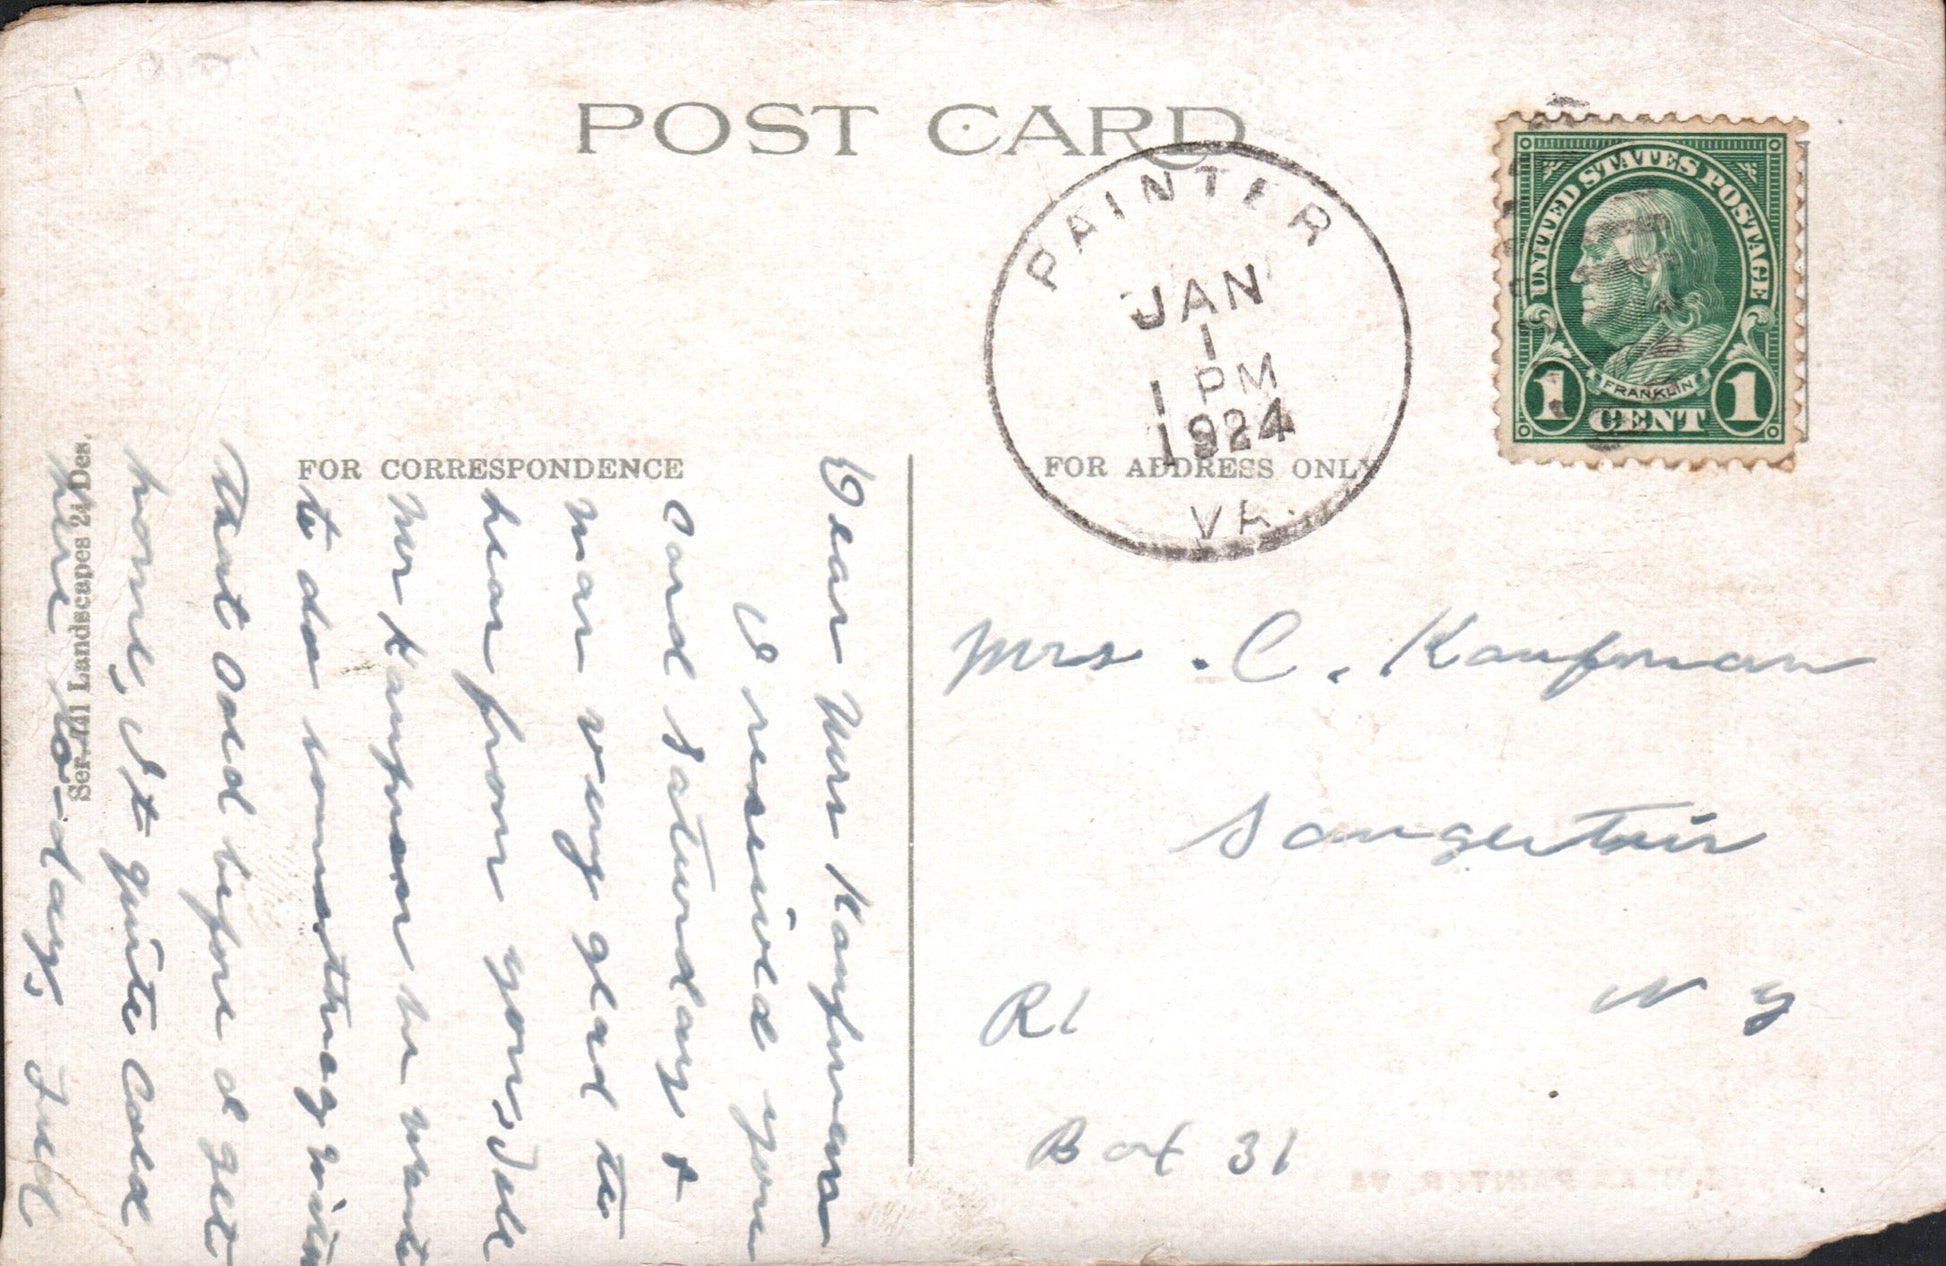 POST CARD
PAINTER
JAN
1
1 PM
1924
VA.
UNITED STATES POSTAGE
FRANKLIN
1 CENT 1
FOR CORRESPONDENCE
FOR ADDRESS ONLY
Dear Mrs Kaufman
I reseived your
Card Saturday &
was very glad to
hear from you, Tell
Mr Kaufman he want
to do somthing with
that Cold before I get
home, It quite Cold
here to-day, Fred
Ser. 741 Landscapes 24 Des.
Mrs. C. Kaufman
Saugerties
N Y
R1
Box 31